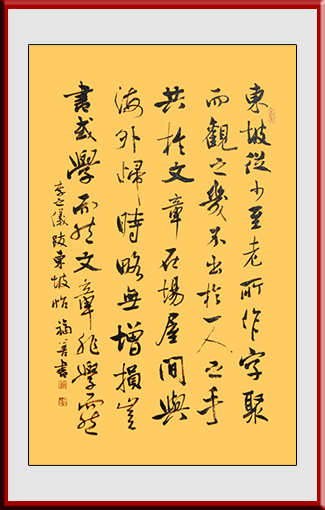 東坡從少至老所作字聚
而觀之幾不出於一人之手
其於文章在場屋間與
海外歸時略無增損豈
書或學而然文章非學而然
李之儀跋東坡帖 福善書